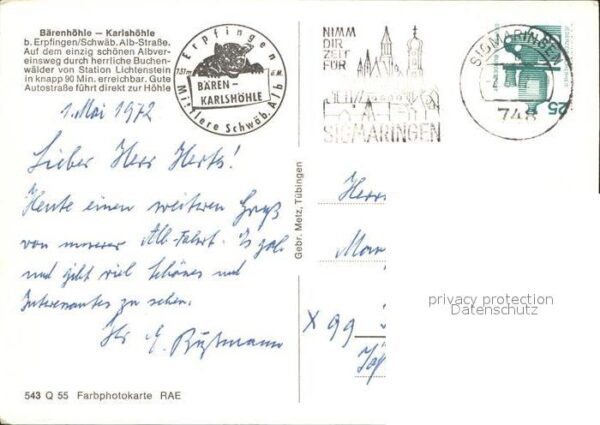 Bärenhöhle — Karlshöhle
b. Erpfingen/Schwäb. Alb-Straße.
Auf dem einzig schönen Albver-
einsweg durch herrliche Buchen-
wälder von Station Lichtenstein
in knapp 90 Min. erreichbar. Gute
Autostraße führt direkt zur Höhle
Erpfingen
BÄREN-
KARLSHÖHLE
Mittlere Schwäb. Alb
NIMM
DIR
ZEIT
FÜR
SIGMARINGEN
SIGMARINGEN
748
25
1. Mai 1972
Lieber Herr
Heute einen weiteren Gruß
von unserer Alb-Fahrt. Es gab
und gibt viel Schönes und
Interessantes zu sehen.
Ihr E.
Gebr. Metz, Tübingen
Herrn
X 99
privacy protection
Datenschutz
543 Q 55 Farbphotokarte RAE